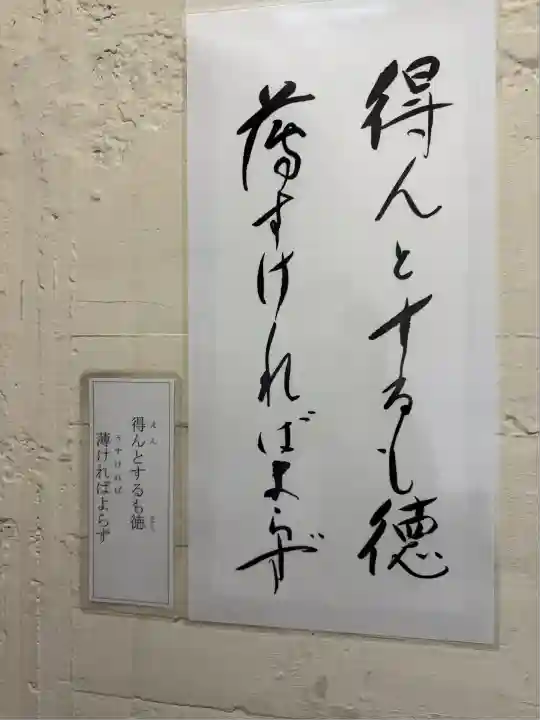 得んとするも徳
薄すければよらず
得んとするも徳
薄ければよらず